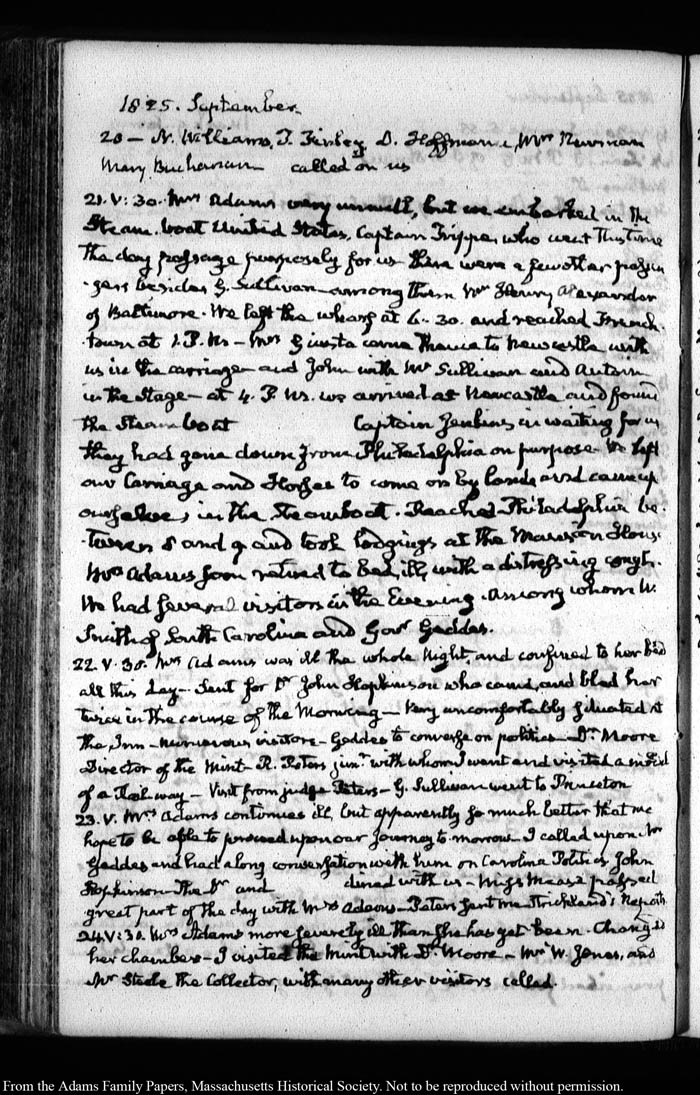 1825. September.
20 — N. Williams, T. Finley, D. Hoffman, Mrs Newman
Mary Buchanan called on us
21. V: 30. Mrs Adams very unwell, but we embarked in the
Steam-boat United States, Captain Trippe, who went this time
the day passage purposely for us there were a few other passen
-gers besides G. Sullivan among them Wm Henry Alexander
of Baltimore. We left the wharf at 6. 30. and reached French-
town at 1. P. M. — Mrs Giusta came thence to Newcastle with
us in the carriage and John with Mr Sullivan and Antoine
in the Stage — at 4. P. M. we arrived at Newcastle and found
the Steam boat Captain Jenkins in waiting for us
they had gone down from Philadelphia on purpose. We left
our Carriage and Horses to come on by land and came up
ourselves in the steamboat. Reached Philadelphia be
-tween 8 and 9 and took lodgings at the Mansion House
Mrs Adams soon retired to bed, ill, with a distressing cough.
We had several visitors in the Evening. Among whom W.
Smith of South Carolina and Govr Geddes.
22. V. 30. Mrs Adams was ill the whole Night, and confined to her bed
all this day — Sent for Dr John Hopkinson who came, and bled her
twice in the course of the Morning — Very uncomfortably situated at
the Inn — numerous visitors — Geddes to converse on politics — Dr Moore
Director of the Mint — R. Peters junr with whom I went and visited a model
of a Rail way — Visit from judge Peters — G. Sullivan went to Princeton
23. V. Mrs Adams continues ill, but apparently so much better that we
hope to be able to proceed upon our Journey to morrow. I called upon Mr
Geddes and had a long conversation with him on Carolina Politics John
Hopkinson The Dr and dined with us — Miss Mease passed
great part of the day with Mrs Adams — Peters sent me Strickland's Reports
24. V: 30. Mrs Adams more severely ill than she has yet been. Changed
her chamber — I visited the Mint with Dr Moore — Mr W. Jones, and
Mr Steele the Collector, with many other visitors called.
From the Adams Family Papers, Massachusetts Historical Society. Not to be reproduced without permission.